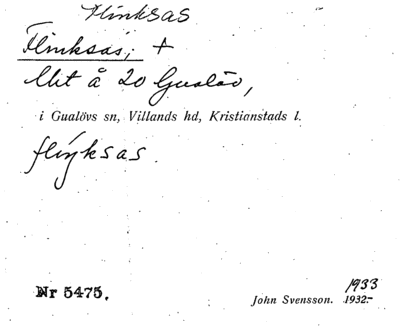 Flinksas
Flinksas; +
lllit å 20 Gualöv,
i Gualövs sn, Villands hd, Kristianstads l.
flíŋksas.
1933
Nr 5475.
John Svensson. 1932.-